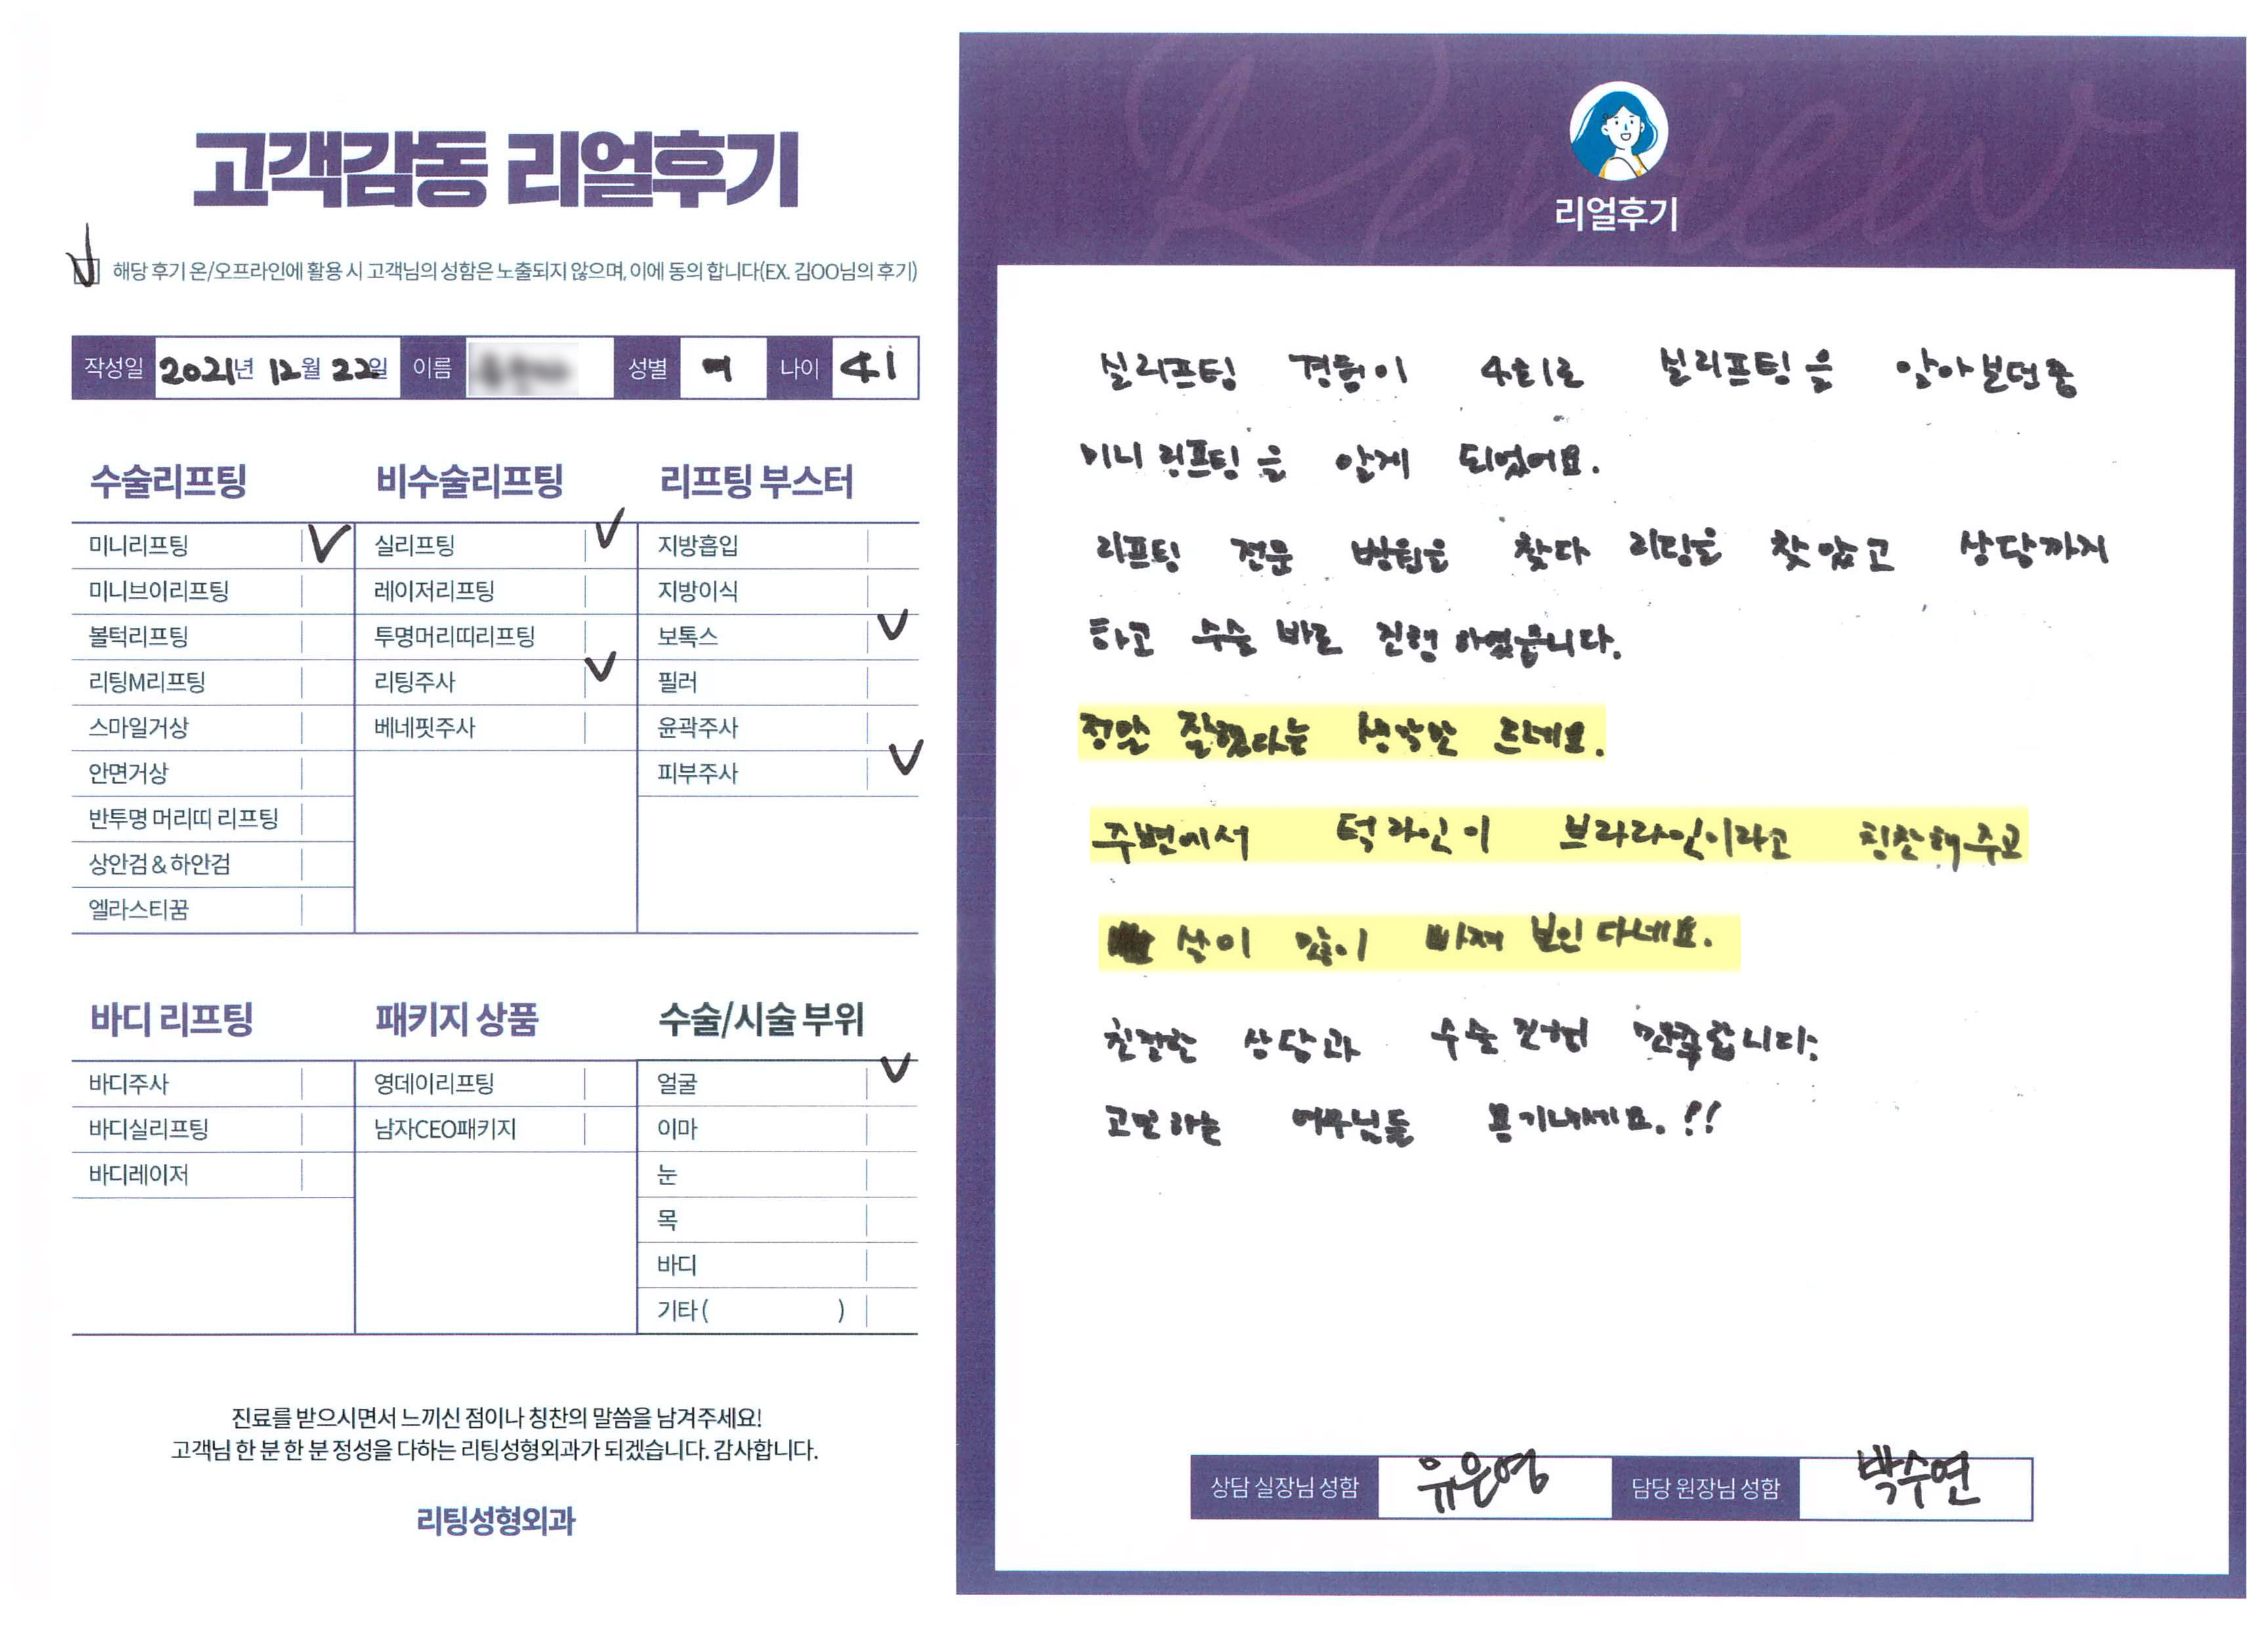 고객감동 리얼후기
해당 후기 온/오프라인에 활용 시 고객님의 성함은 노출되지 않으며, 이에 동의 합니다(EX. 김OO님의 후기)
작성일 2021년 12월 22일 이름 성별 여 나이 41
수술리프팅
미니리프팅
미니브이리프팅
볼턱리프팅
리팅M리프팅
스마일거상
안면거상
반투명 머리띠 리프팅
상안검 & 하안검
엘라스티꿈
비수술리프팅
실리프팅
레이저리프팅
투명머리띠리프팅
리팅주사
베네핏주사
리프팅 부스터
지방흡입
지방이식
보톡스
필러
윤곽주사
피부주사
바디 리프팅
바디주사
바디실리프팅
바디레이저
패키지 상품
영데이리프팅
남자CEO패키지
수술/시술 부위
얼굴
이마
눈
목
바디
기타 ( )
진료를 받으시면서 느끼신 점이나 칭찬의 말씀을 남겨주세요!
고객님 한 분 한 분 정성을 다하는 리팅성형외과가 되겠습니다. 감사합니다.
리팅성형외과
Review
리얼후기
실리프팅 경험이 4회로 실리프팅을 알아보던중
미니 리프팅을 알게 되었어요.
리프팅 전문 병원을 찾다 리팅을 찾았고 상담까지
하고 수술 바로 진행 하였습니다.
정말 잘했다는 생각만 드네요.
주변에서 턱라인이 브라라인이라고 칭찬해주고
살이 많이 빠져 보인다네요.
친절한 상담과 수술 진행 만족합니다.
고민하는 여무님들 용기내세요.!!
상담 실장님 성함 유은영 담당 원장님 성함 박수연